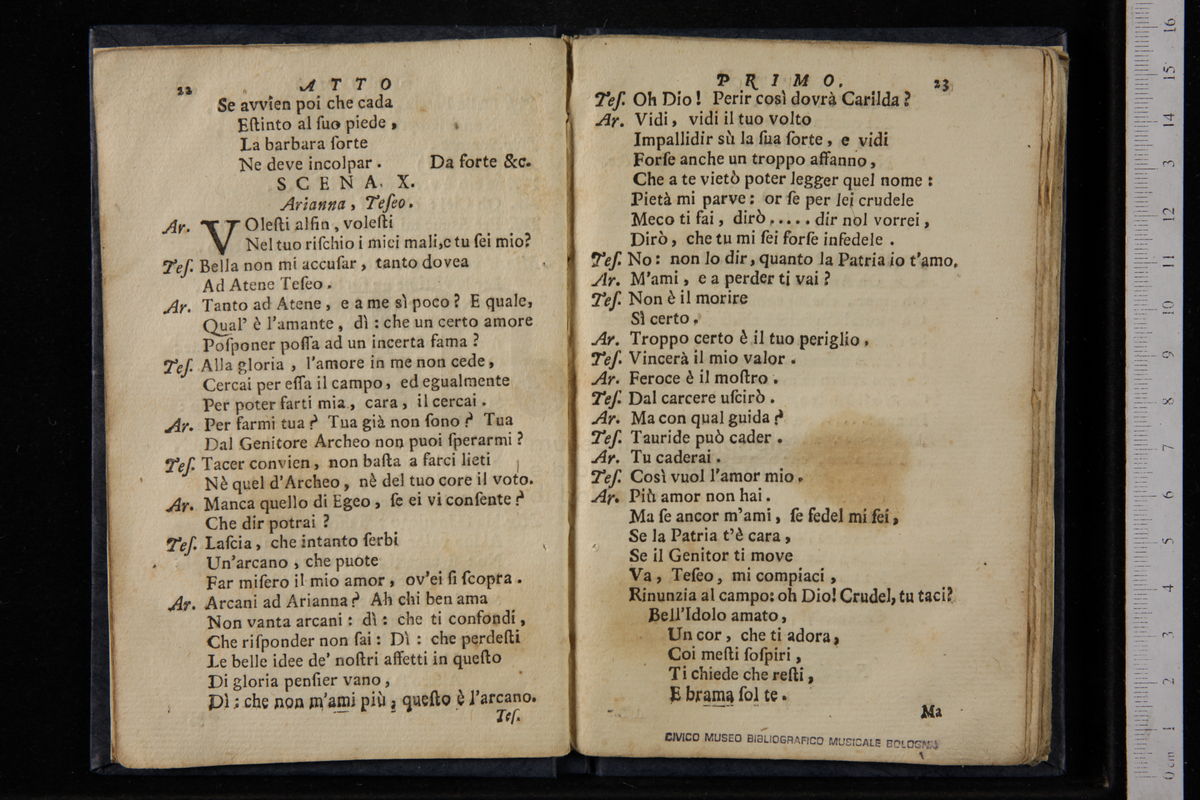 22 ATTO
Se avvien poi che cada
Eſtinto al ſuo piede,
La barbara ſorte
Ne deve incolpar. Da forte &c.
SCENA. X.
Arianna, Teſeo.
Ar. VOleſti alfin, voleſti
Nel tuo riſchio i miei mali, e tu ſei mio?
Teſ. Bella non mi accuſar, tanto dovea
Ad Atene Teſeo.
Ar. Tanto ad Atene, e a me sì poco? E quale,
Qual' è l'amante, dì: che un certo amore
Poſponer poſſa ad un incerta fama?
Teſ. Alla gloria, l'amore in me non cede,
Cercai per eſſa il campo, ed egualmente
Per poter farti mia, cara, il cercai.
Ar. Per farmi tua? Tua già non ſono? Tua
Dal Genitore Archeo non puoi ſperarmi?
Teſ. Tacer convien, non baſta a farci lieti
Nè quel d'Archeo, nè del tuo core il voto.
Ar. Manca quello di Egeo, ſe ei vi conſente?
Che dir potrai?
Teſ. Laſcia, che intanto ſerbi
Un'arcano, che puote
Far miſero il mio amor, ov'ei ſi ſcopra.
Ar. Arcani ad Arianna? Ah chi ben ama
Non vanta arcani: dì: che ti confondi,
Che riſponder non ſai: Dì: che perdeſti
Le belle idee de' noſtri affetti in queſto
Di gloria penſier vano,
Dì: che non m'ami più, queſto è l'arcano.
Teſ.
PRIMO. 23
Teſ. Oh Dio! Perir così dovrà Carilda?
Ar. Vidi, vidi il tuo volto
Impallidir sù la ſua ſorte, e vidi
Forſe anche un troppo affanno,
Che a te vietò poter legger quel nome:
Pietà mi parve: or ſe per lei crudele
Meco ti fai, dirò..... dir nol vorrei,
Dirò, che tu mi ſei forſe infedele.
Teſ. No: non lo dir, quanto la Patria io t'amo.
Ar. M'ami, e a perder ti vai?
Teſ. Non è il morire
Sì certo.
Ar. Troppo certo è il tuo periglio.
Teſ. Vincerà il mio valor.
Ar. Feroce è il moſtro.
Teſ. Dal carcere uſcirò.
Ar. Ma con qual guida?
Teſ. Tauride può cader.
Ar. Tu caderai.
Teſ. Così vuol l'amor mio.
Ar. Più amor non hai.
Ma ſe ancor m'ami, ſe fedel mi ſei,
Se la Patria t'è cara,
Se il Genitor ti move
Va, Teſeo, mi compiaci,
Rinunzia al campo: oh Dio! Crudel, tu taci?
Bell'Idolo amato,
Un cor, che ti adora,
Coi meſti ſoſpiri,
Ti chiede che reſti,
E brama ſol te.
Ma
CIVICO MUSEO BIBLIOGRAFICO MUSICALE BOLOGNA
0 cm 1 2 3 4 5 6 7 8 9 10 11 12 3 14 15 16